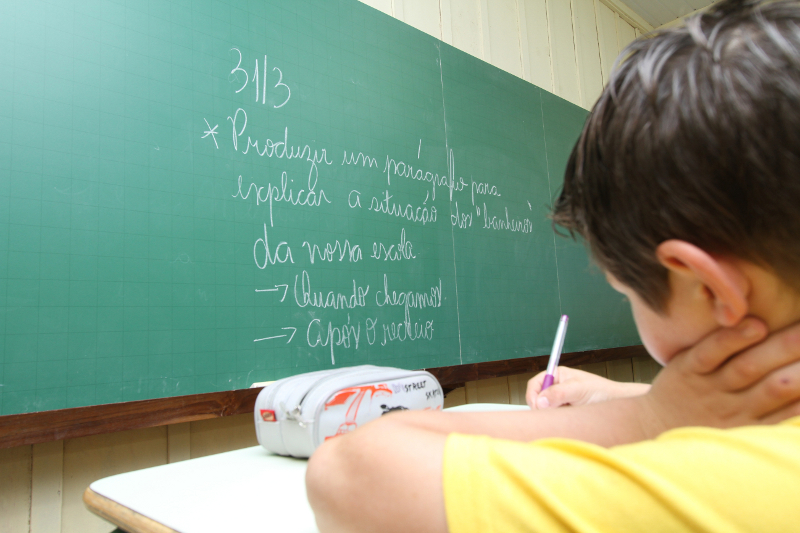 31/3
* Produzir um parágrafo para
explicar a situação dos "banheiros"
da nossa escola
→ Quando chegamos
→ após o recreio
STREET